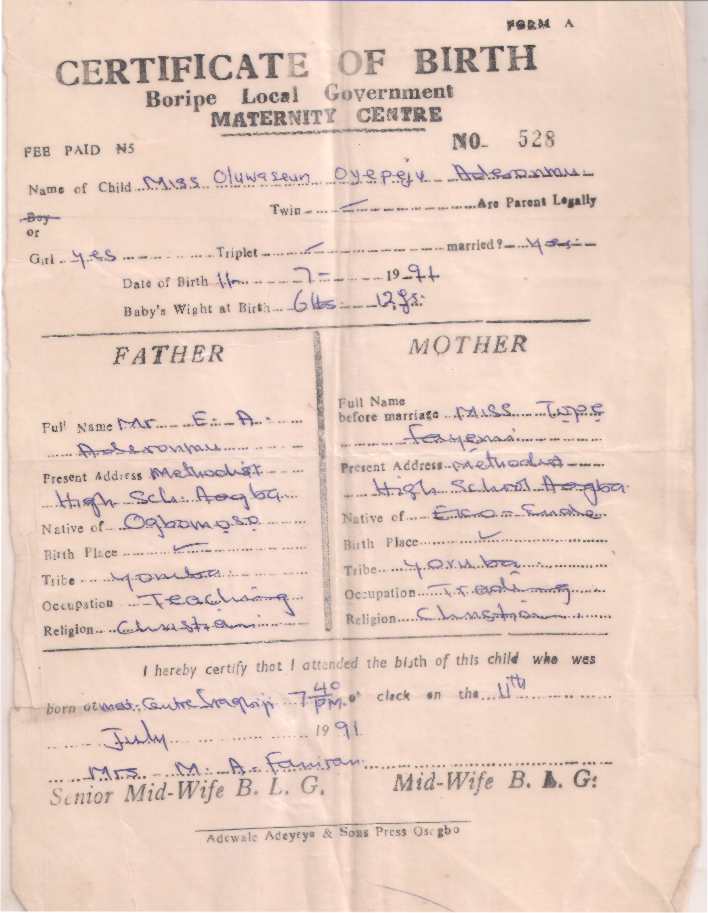 FORM A
CERTIFICATE OF BIRTH
Boripe Local Government
MATERNITY CENTRE
FEE PAID ₦5 NO. 528
Name of Child Miss Oluwaseun Oyepeju Aderonmu
Twin ✓ Are Parent Legally
Boy
or
Girl Yes Triplet ✓ married? Yes
Date of Birth 11 - 7 - 1991
Baby's Wight at Birth 6lbs 12
FATHER MOTHER
Full Name Mr. E. A.
Aderonmu
Present Address Methodist
High Sch.
Native of Ogbomoso
Birth Place ✓
Tribe Yoruba
Occupation Teaching
Religion Christian
Full Name
before marriage Miss Tope
Fayemi
Present Address Methodist
High School
Native of
Birth Place ✓
Tribe Yoruba
Occupation Trading
Religion Christian
I hereby certify that I attended the birth of this child who wes
born at mat. Centre 7 40 PM. o' clack on the 11th
July 1991
Mrs M. A. Faniran
Senior Mid-Wife B. L. G. Mid-Wife B. L. G:
Adewale Adeyeye & Sons Press Osogbo